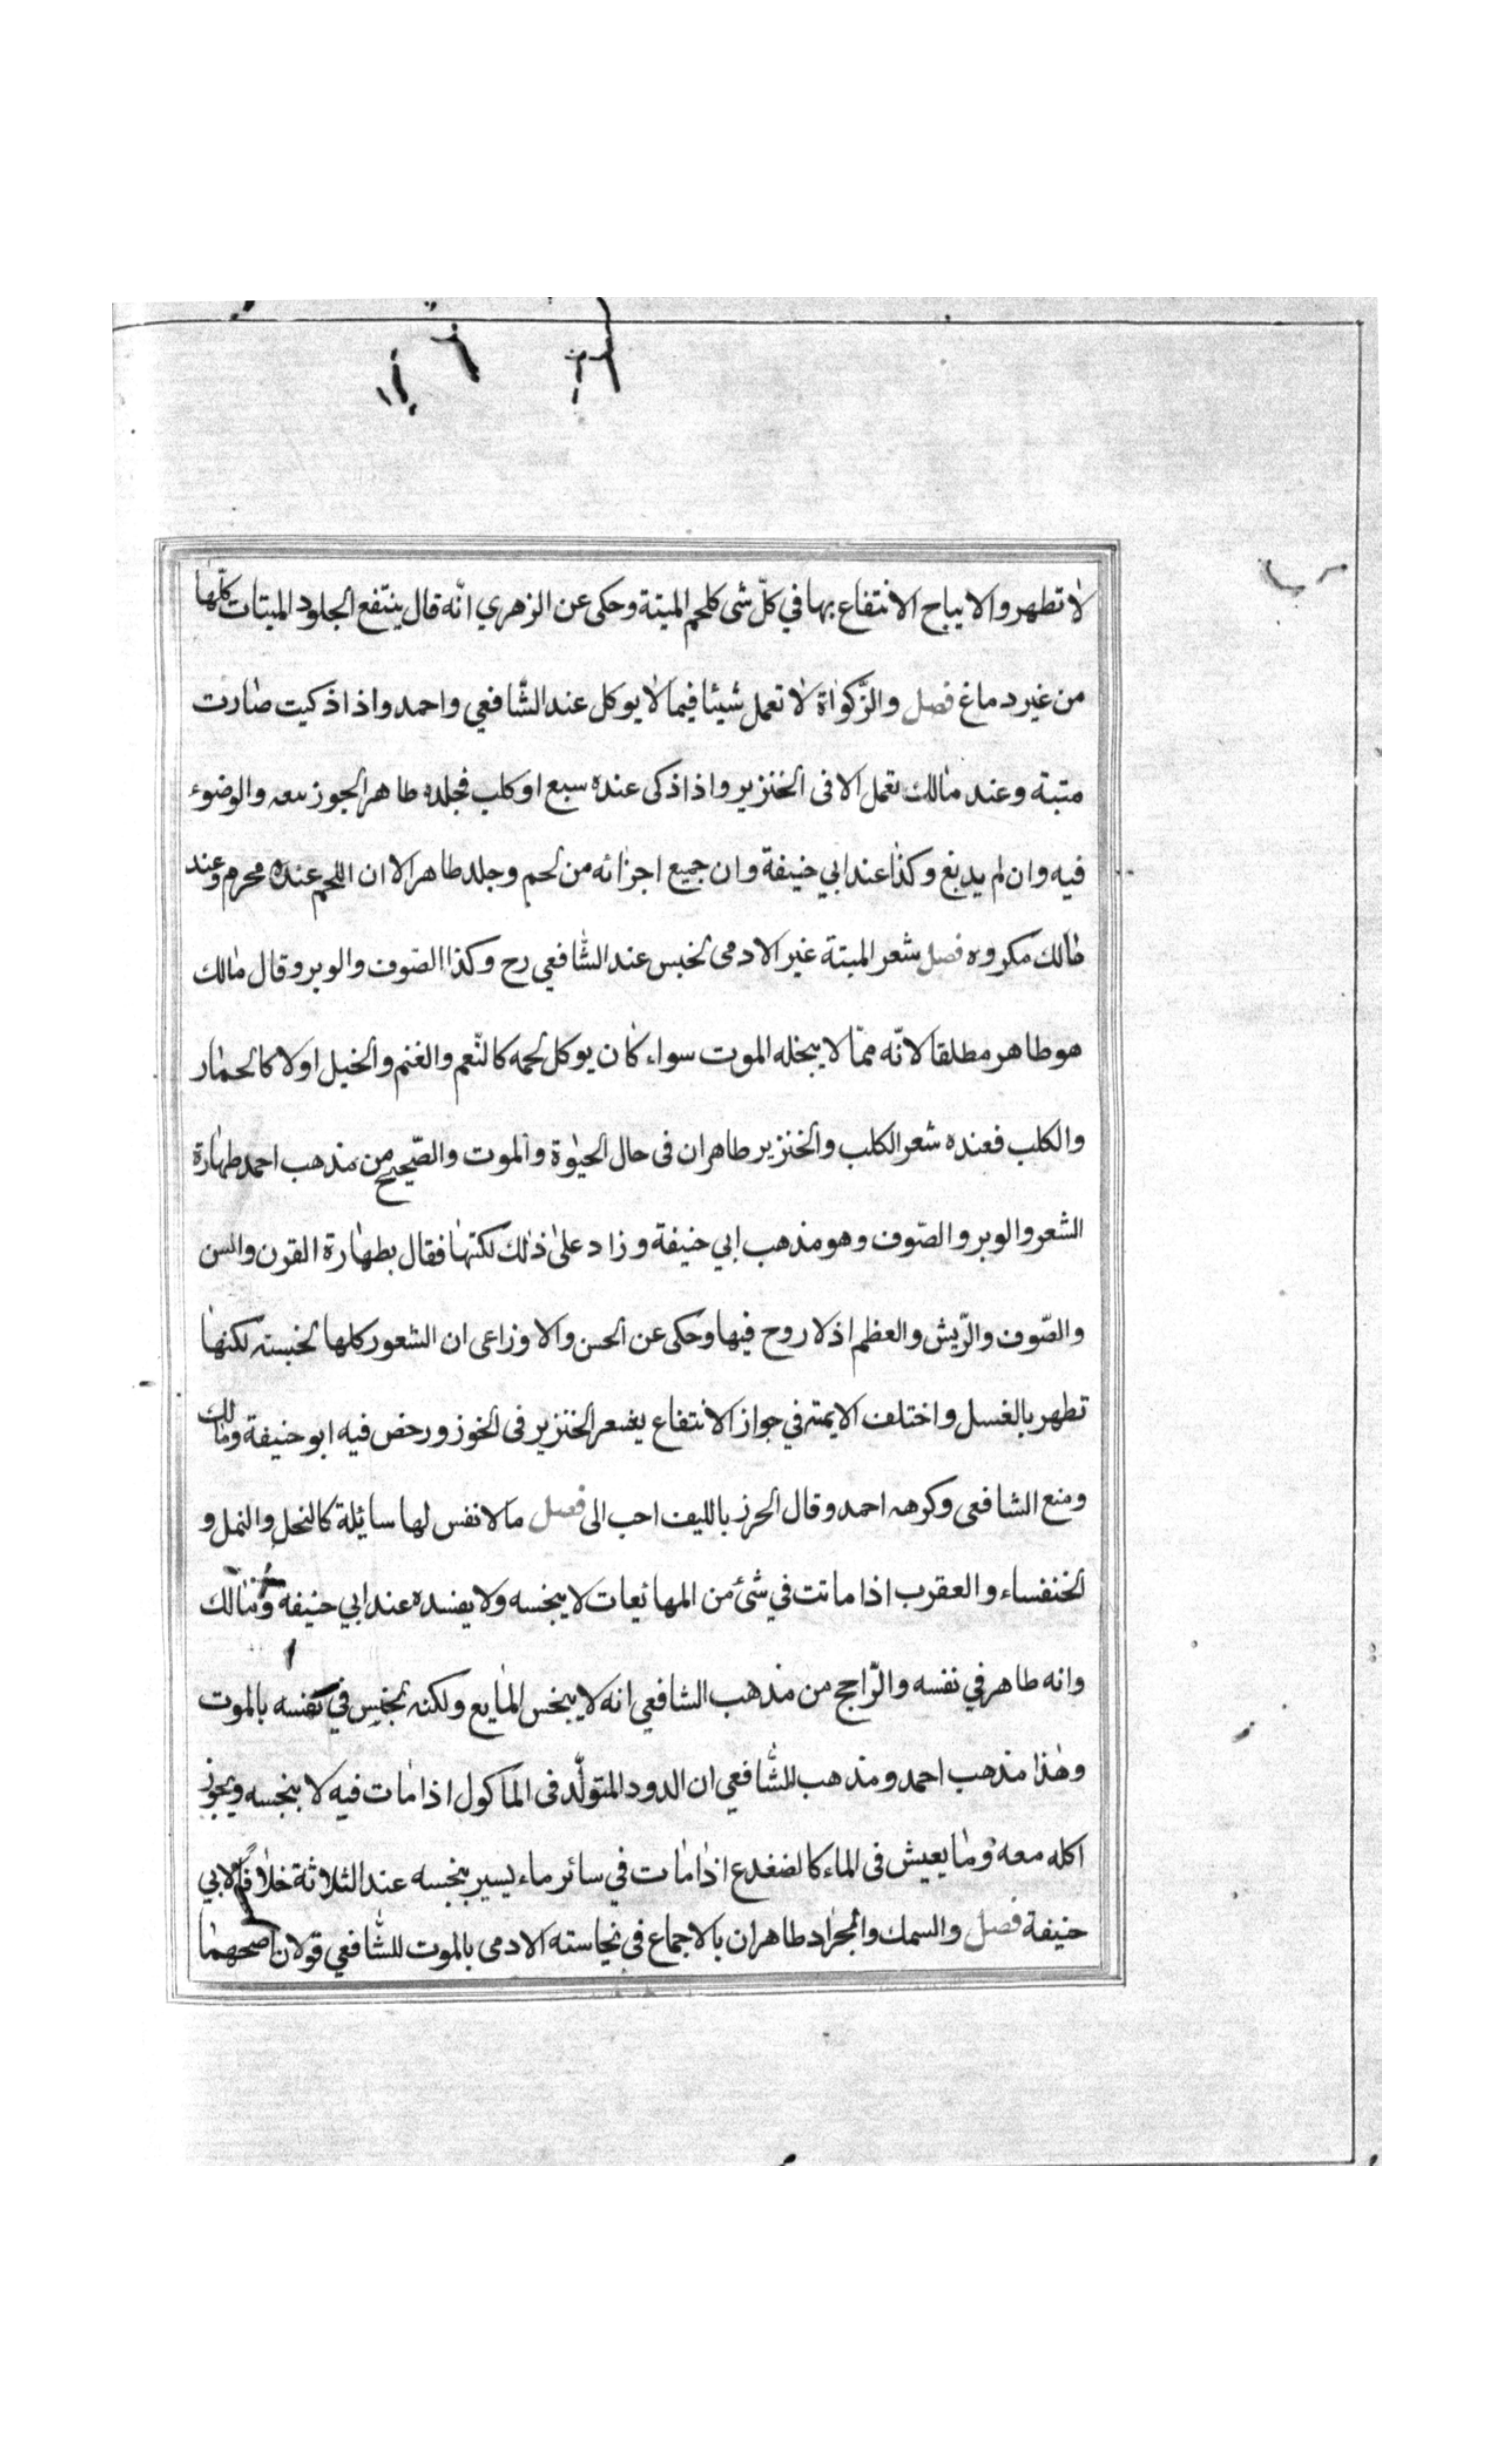 لا تطهر والا يباح الانتفاع بها في كلّ شى كلحم الميتة وحكى عن الزهري انّه قال ينتفع الجلود الميتات كلّها
من غير دماغ فصل والزّكواة لا تعمل شيئا فيما لا يوكل عند الشّافعي واحمد واذا ذكيت صارت
متبة وعند مالك تعمل الا فى الخنزير واذا ذكى عنده سبع او كلب فجلده طاهر الجوز بيعه والوضوء
فيه وان لم يدبغ وكذا عند ابي حنيفة وان جميع اجزائه من لحم وجلد طاهر الا ان اللحم عنده محرم وعند
مالك مكروه فصل شعر الميتة غير الادمى نجس عند الشّافعي رح وكذا الصّوف والوبر وقال مالك
هو طاهر مطلقا لانّه ممّا لا يبخله الموت سواء كان يوكل لحمه كالنّعم والغنم والخيل اولا كالحمار
والكلب فعنده شعر الكلب والخنزير طاهران فى حال الحيوة والموت والصّحيح من مذهب احمد طهارة
الشعر والوبر والصّوف وهو مذهب ابي حنيفة وزاد على ذلك لكتها فقال بطهارة القرن والسن
والصّوف والرّيش والعظم اذ لا روح فيها وحكى عن الحسن والاوزاعى ان الشعور كلها نجسته لكنها
تطهر بالغسل واختلف الايمته في جواز الانتفاع يشعر الخنزير فى الخوز ورخص فيه ابو حنيفة ومالك
ومنع الشافعى وكرهه احمد وقال الحرز بالليف احب الى فصل ما لا نفس لها سائلة كالنحل والنمل و
الخنفساء والعقرب اذا ماتت في شئ من المهائعات لا ينجسه ولا يفسده عند ابي حنيفه ومالك
وانه طاهر في نفسه والرّاجح من مذهب الشافعي انه لا ينجس المايع ولكنه نجس في نفسه بالموت
وهذا مذهب احمد ومذهب الشّافعي ان الدود المتولّد فى الماكول اذا مات فيه لا ينجسه ويجوز
اكله معه وما يعيش فى الماء كالضفدع اذا مات في سائر ماء يسير ينجسه عند الثلاثة خلافا لابي
حنيفة فصل والسمك والجراد طاهران بالاجماع فى نجاسته الادمى بالموت للشّافعي قولان اصحهما